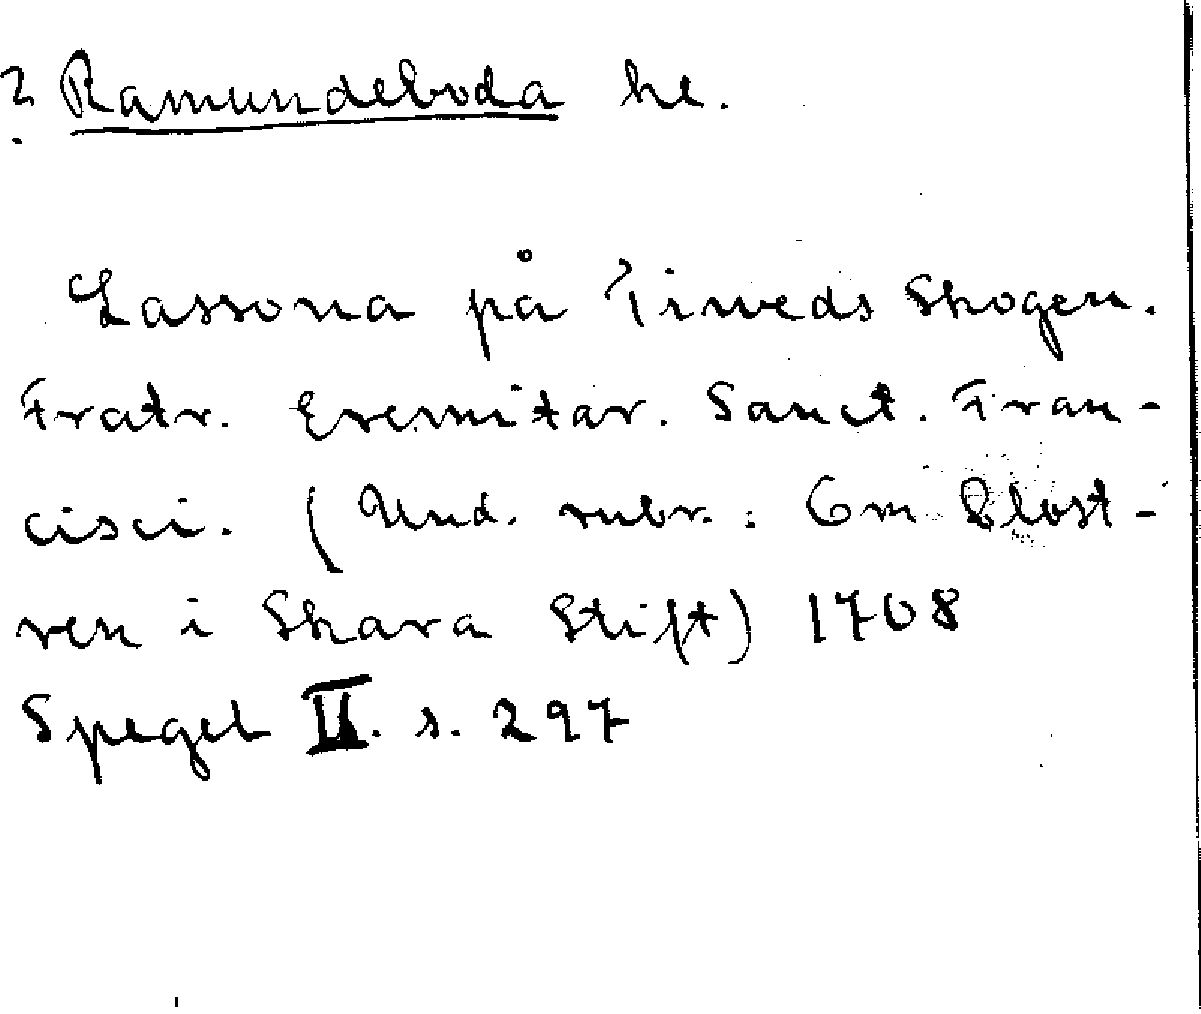 ? Ramundeboda he.
Lassona på Tiweds Skogen.
Fratr. Eremitar. Sanct. Fran-
cisci. (Und. rubr.: Om Clost-
ren i Skara Stift) 1708
Spegel II. s. 297